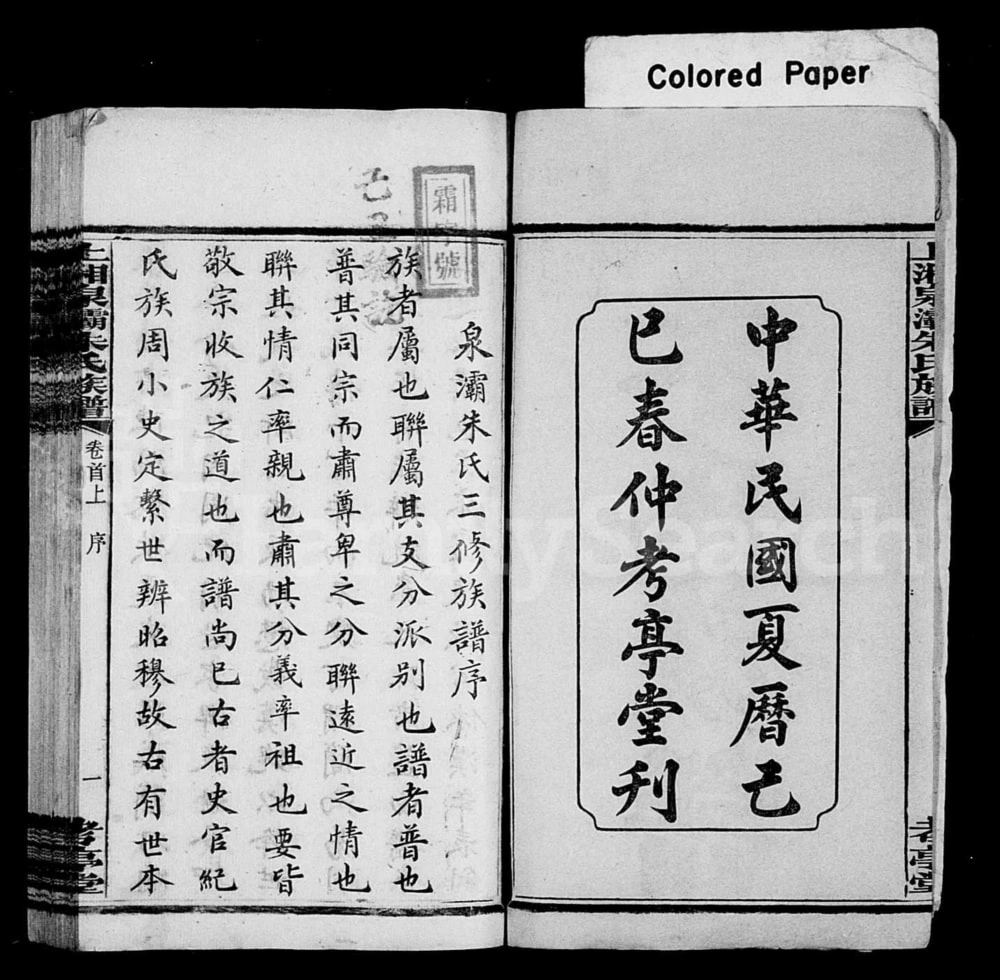 Colored Paper
中華民國夏曆己
巳春仲考亭堂刊
上湘泉灞朱氏族譜
考亭堂
霜字號
泉灞朱氏三修族譜序
族者屬也聯屬其支分派別也譜者普也
普其同宗而肅尊卑之分聯遠近之情也
聯其情仁率親也肅其分義率祖也要皆
敬宗收族之道也而譜尚已古者史官紀
氏族周小史定繫世辨昭穆故右有世本
上湘泉灞朱氏族譜
卷首上
序
一
考亭堂
FamilySearch